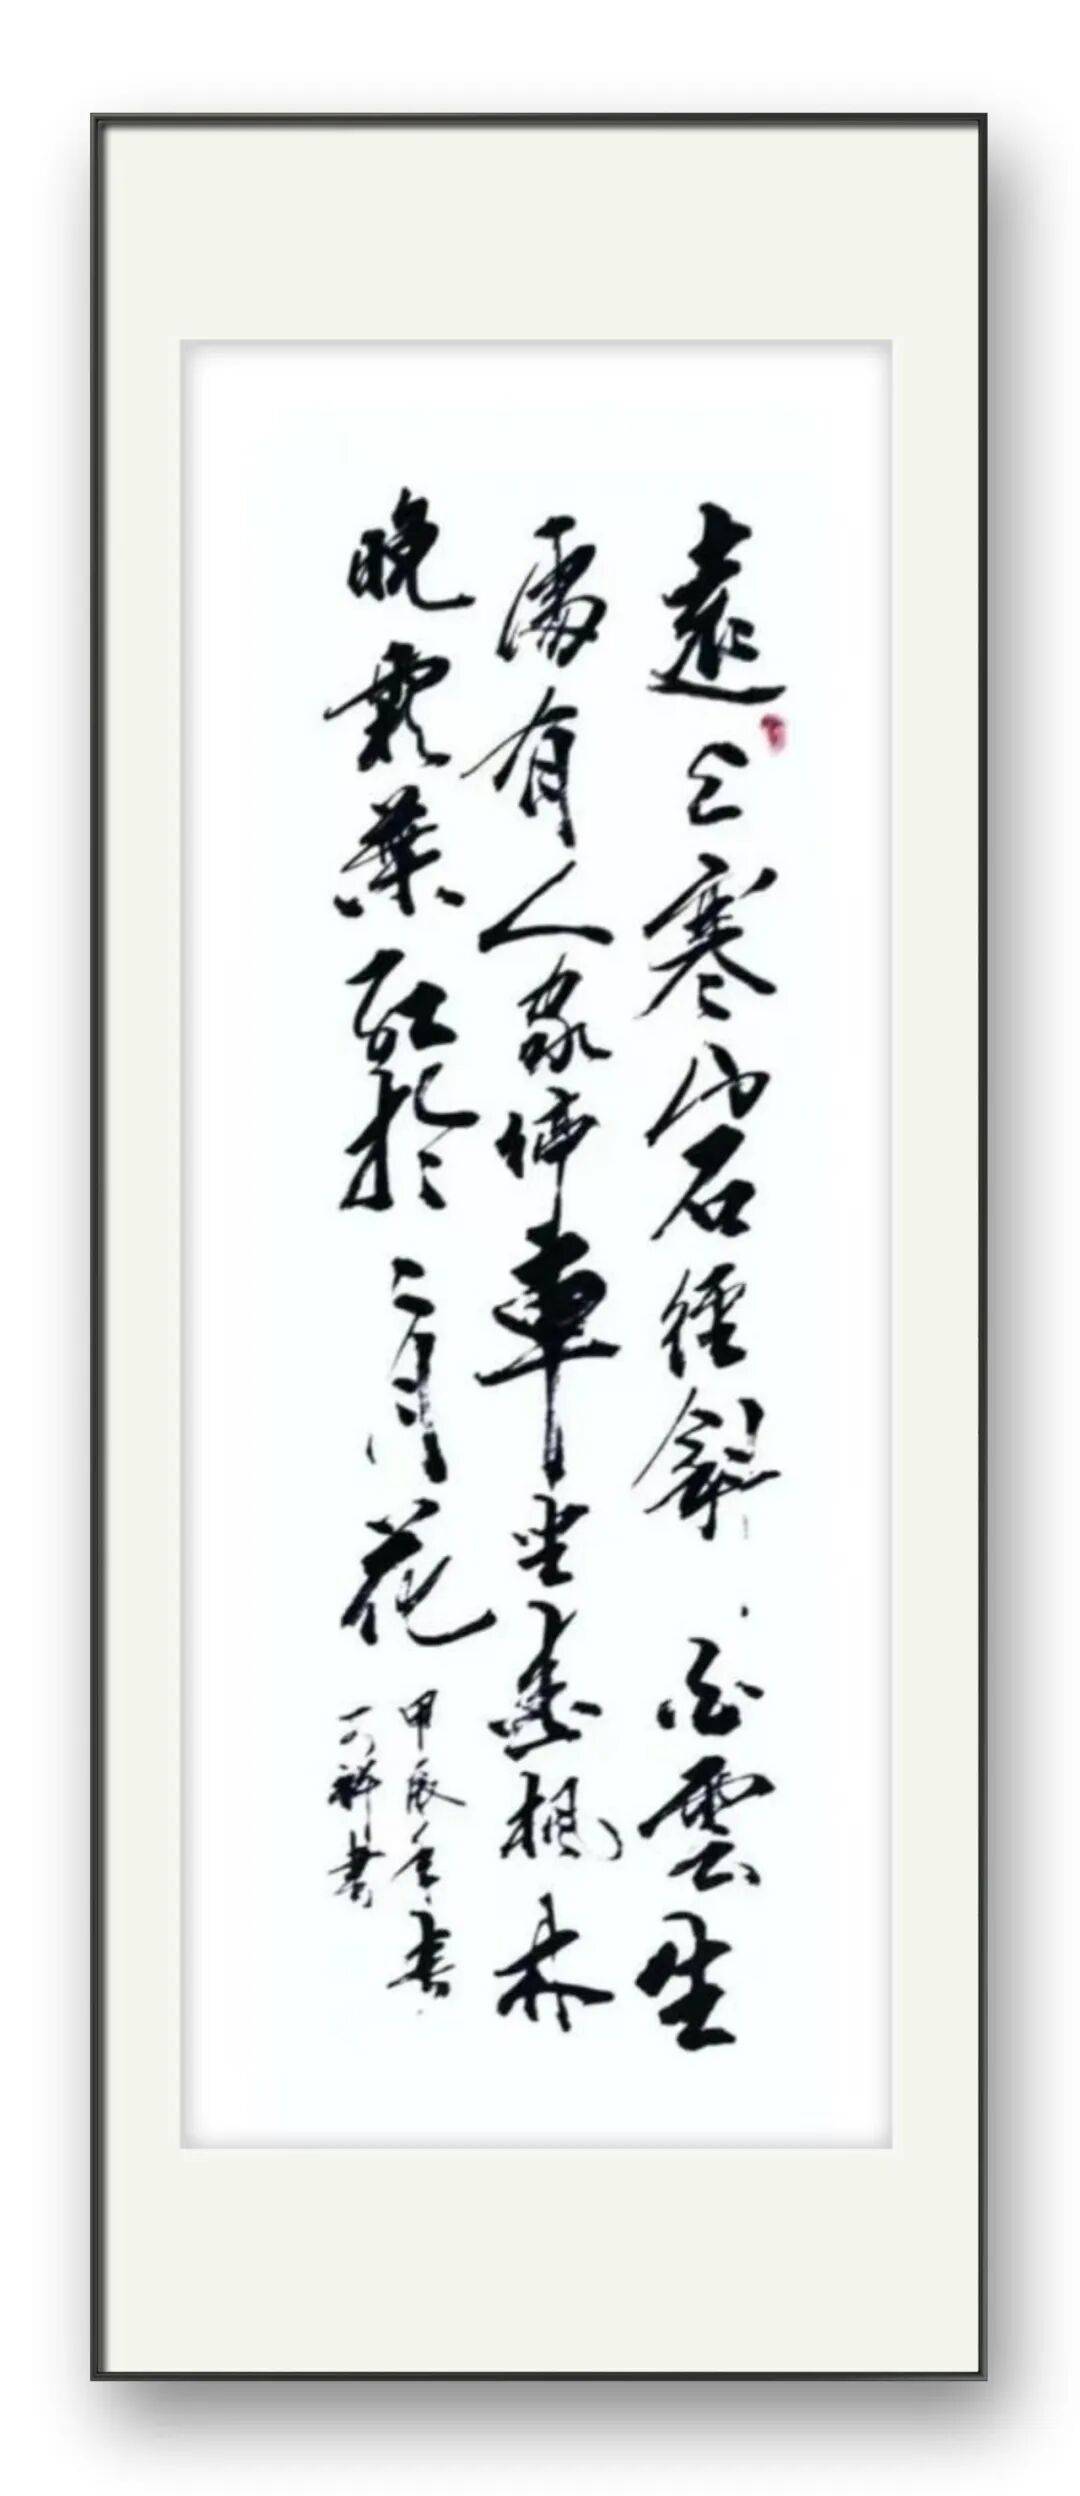 遠上寒山石徑斜白雲生
處有人家停車坐愛楓林
晚霜葉紅於二月花
甲辰年春
祥書